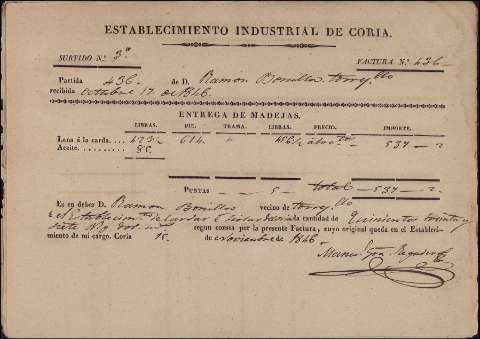 ESTABLECIMIENTO INDUSTRIAL DE CORIA.
SURTIDO N.º 3º FACTURA N.º 436
Partida 436 de D. Ramon Bonilla
recibida Octubre 17 de 1846
ENTREGA DE MADEJAS.
LIBRAS. PIE. TRAMA. LIBRAS. PRECIO. IMPORTE.
Lana á la carda 614 " 537 - 2
Aceite.
PUNTAS 5 total 537 - 2
Es en deber D. Ramon Bonilla vecino de
á el Establecim.to de cardar é la cantidad de Quinientos treinta y
siete segun consta por la presente Factura, cuyo original queda en el Estableci-
miento de mi cargo. Coria 15 de Noviembre de 1846